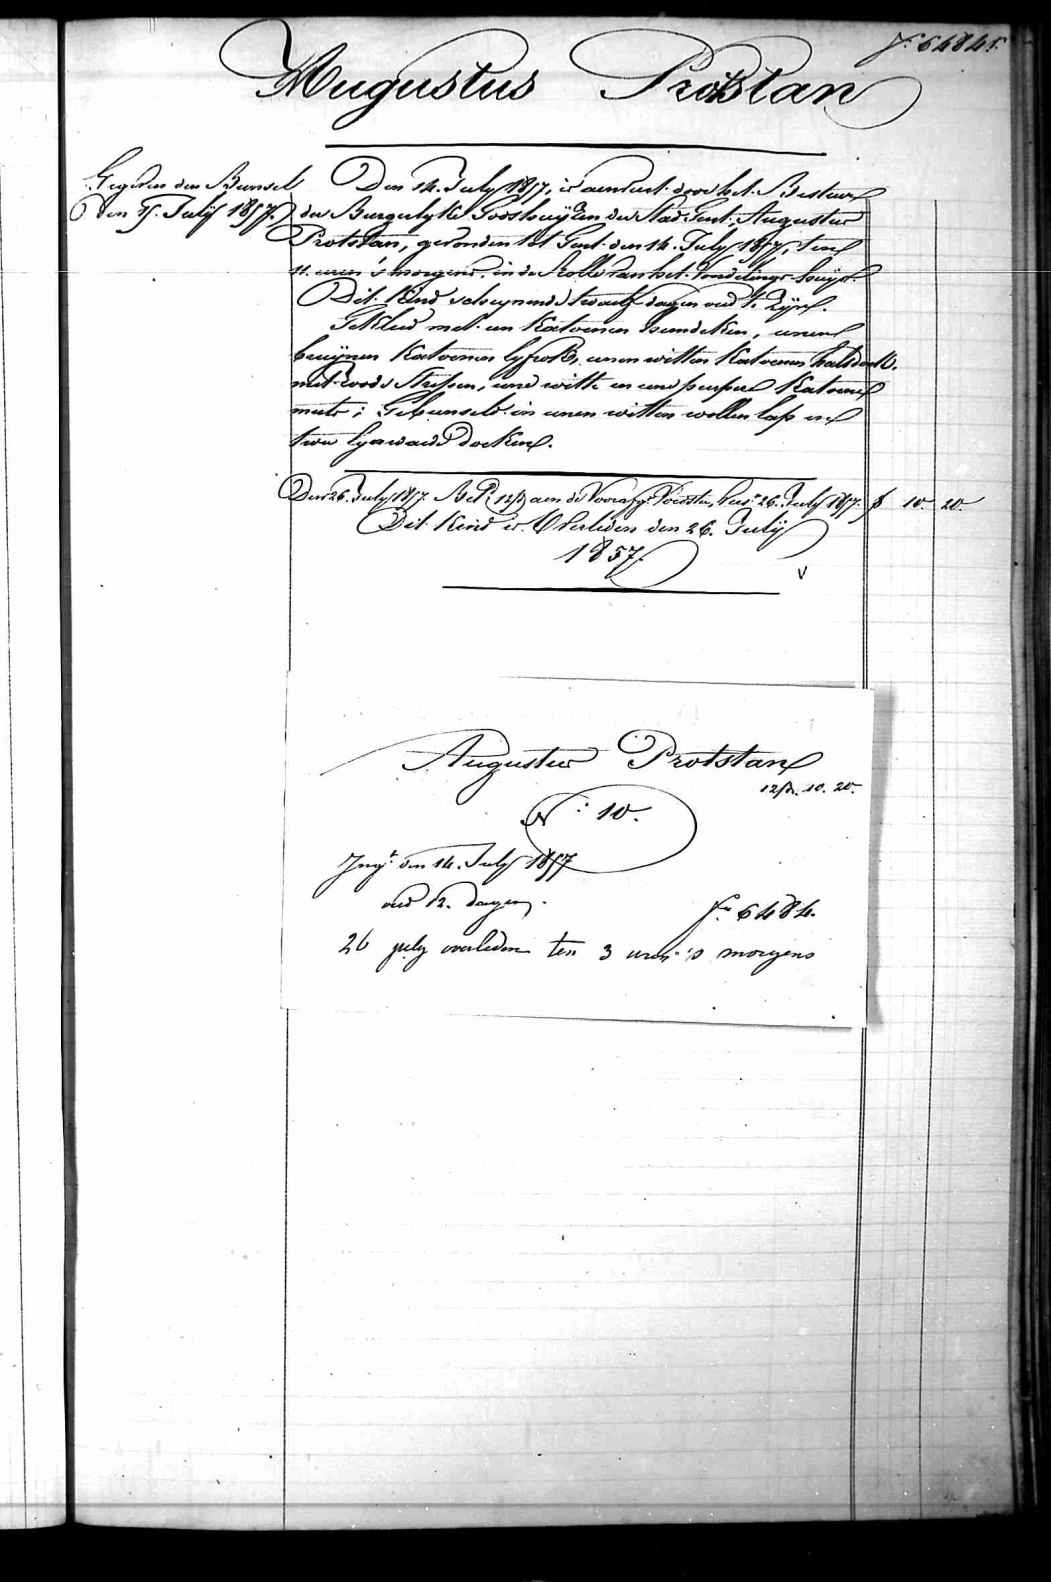 f.º 6484.
Augustus Protstan
Gegeven den Bunsel
den 15. July 1857.
Den 14. July 1857, is aenveerd door het Bestuer
der Burgerlyke Godshuyzen der Stad Gent Augustus
Protstan, gevonden tot Gent den 14. July 1857, ten
11. uren 's morgens, in de Rolle van het Vondelings huys.
Dit Kind schynende twaelf dagen oud te zyn.
Gekleed met een Katoenen hemdeken, eenen
bruynen Katoenen lyfrok, eenen witten Katoenen halsdoek
met roode strepen, eene witte en eene purper Katoene
muts; Gebunseld in eenen witten wollen lap en
twee lywaede doeken.
Den 26. July 1857. 12/d aen de Voedster, 26. July 1857. f 10. 20.
Dit Kind is Overleden den 26. July
1857.
Augustus Protstan
12/d. 10. 20.
N.º 10.
Ing.t den 14. July 1857
oud 12. dagen.
f.º 6484.
26 july overleden ten 3 uren 's morgens